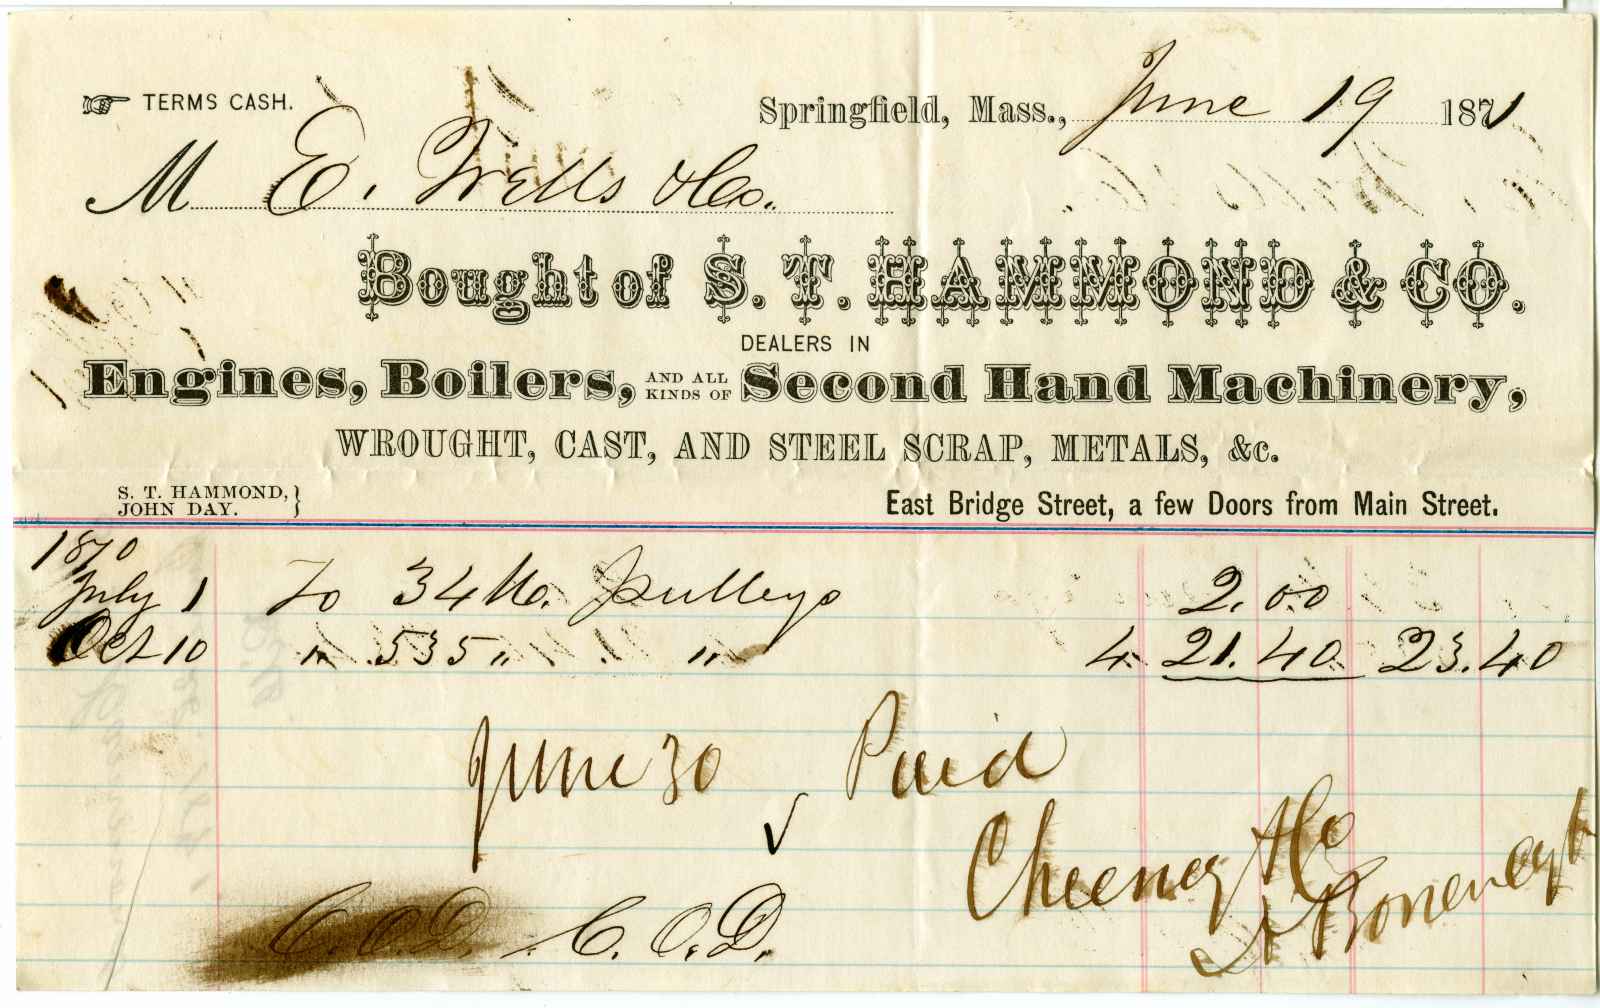 TERMS CASH.
Springfield, Mass., June 19 1871
M E. Wells & Co.
Bought of S. T. HAMMOND & CO.
DEALERS IN
Engines, Boilers, AND ALL KINDS OF Second Hand Machinery,
WROUGHT, CAST, AND STEEL SCRAP, METALS, &c.
S. T. HAMMOND,
JOHN DAY.
East Bridge Street, a few Doors from Main Street.
1870
July 1 To 34 lb. pulleys 2.00
Oct 10 " 535 " " 4 21.40 23.40
June 30 Paid
Cheeney & Co
C.O.D. C.O.D.